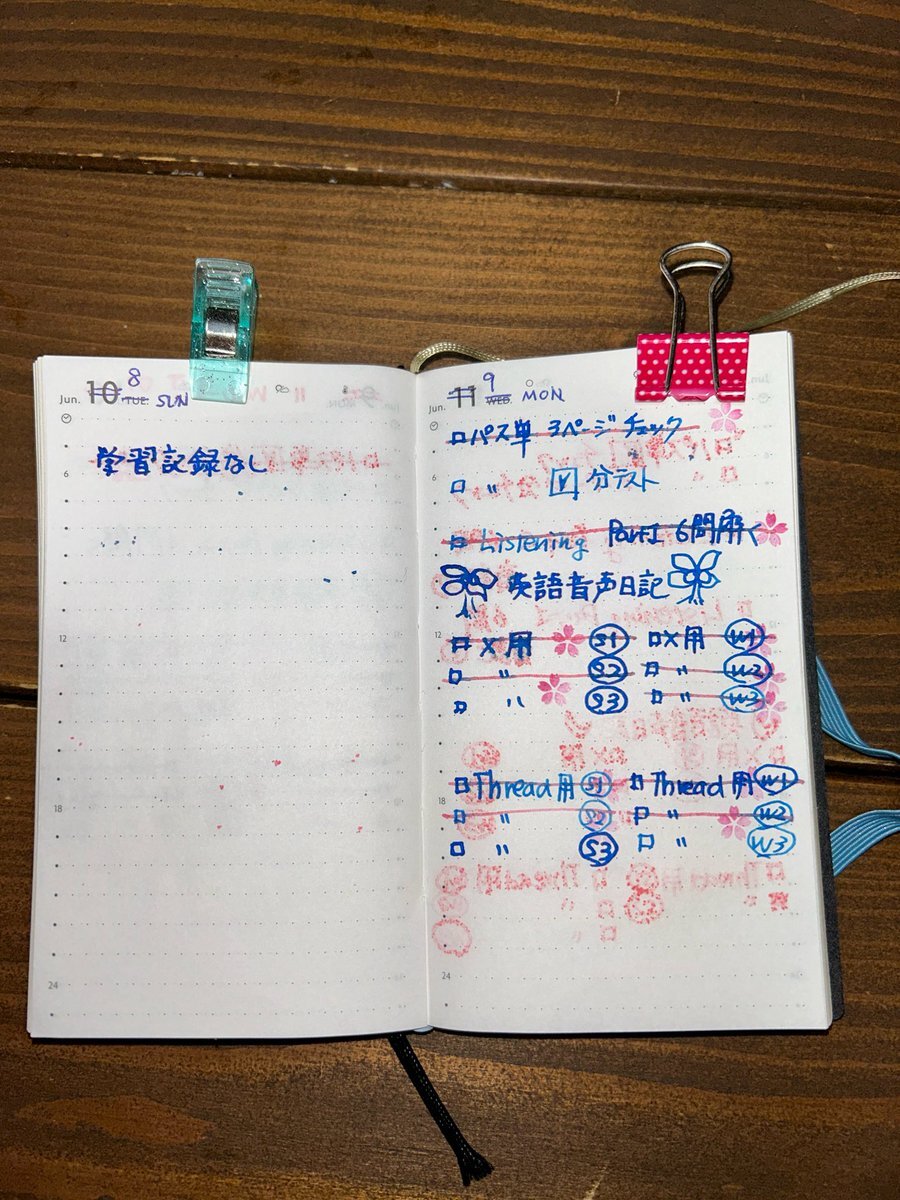 Jun. 10 8 TUE. SUN
学習記録なし
6
12
18
24
Jun. 11 9 WED MON
ロパス単 3ページチェック
6
ロ 〃 分テスト
ロ Listening Part1 6問解く
英語音声日記
12
ロX用 S1 ロX用 W1
ロ 〃 S2 ロ 〃 W2
ロ 〃 S3 ロ 〃 W3
18
ロThread用 S1 ロThread用 W1
ロ 〃 S2 ロ 〃 W2
ロ 〃 S3 ロ 〃 W3
24